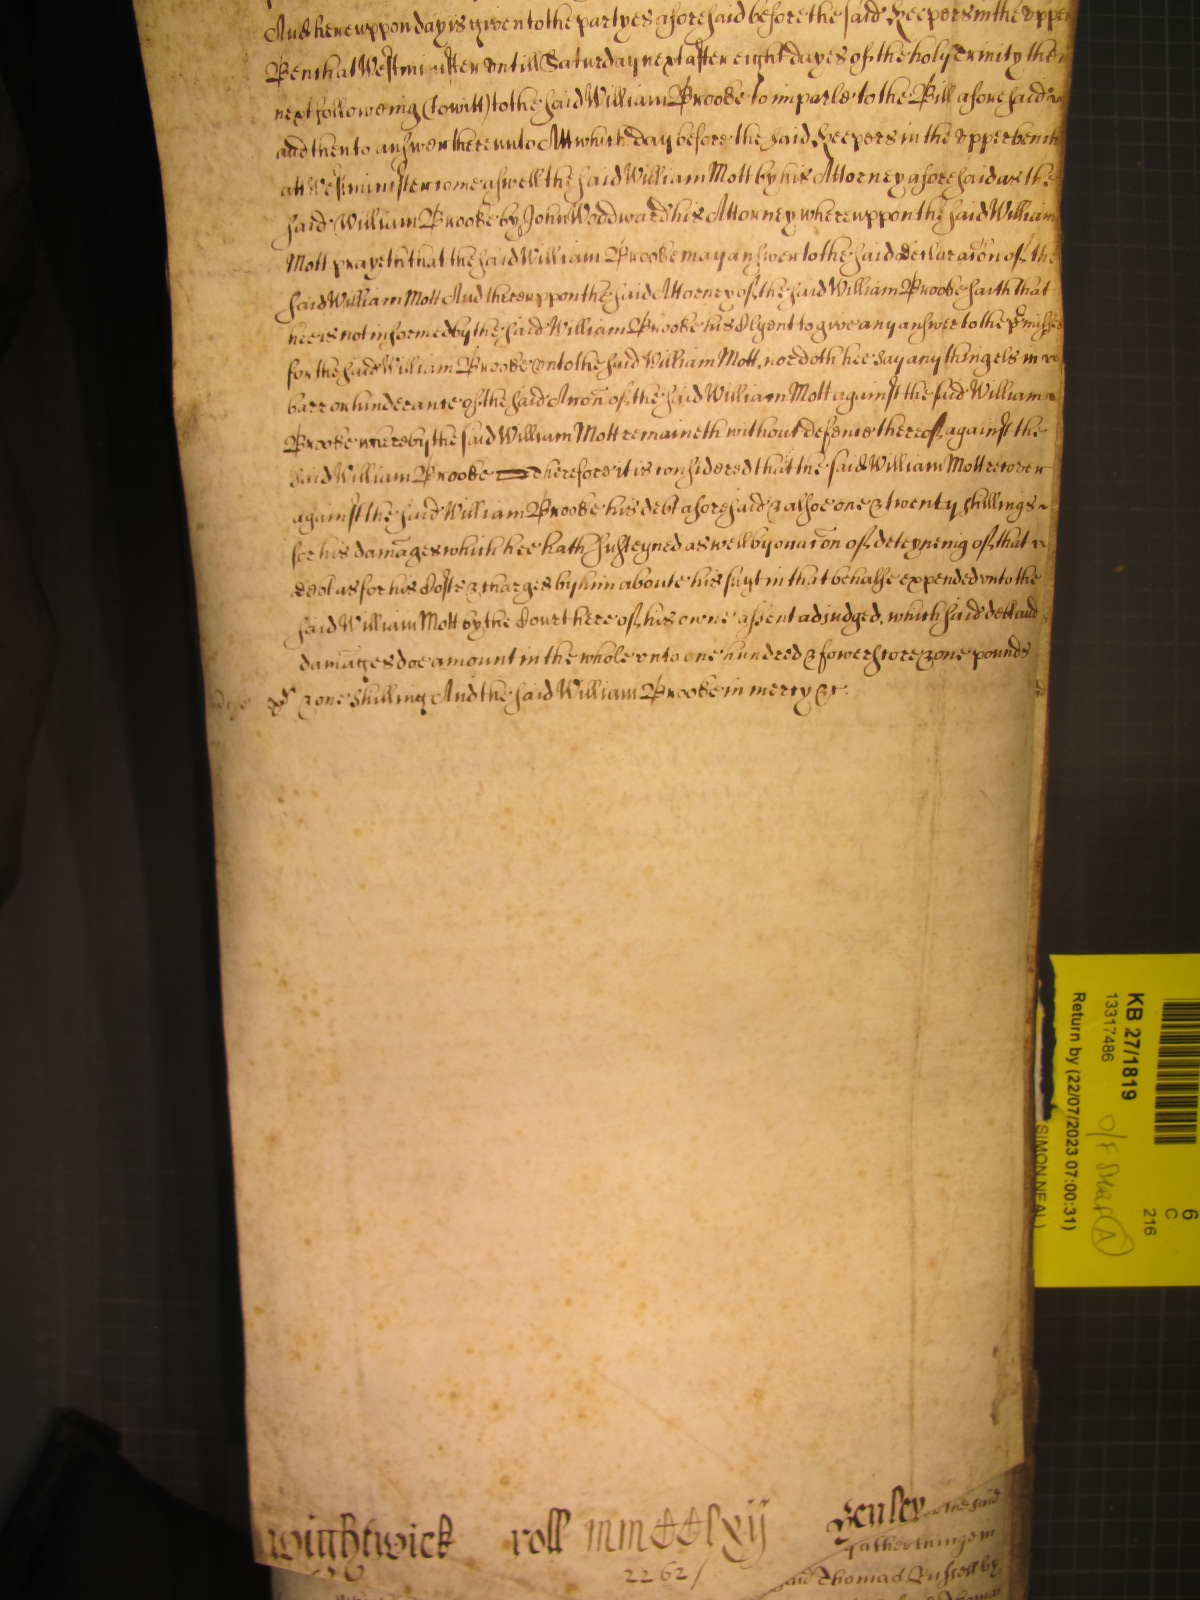 And hereuppon day is given to the partyes aforesaid before the said Keepers in the upper
Bench at Westminster untill Saturday next after eight dayes of the holy Trinity then
next followeing (to witt) to the said William Brooke to imparle to the Bill aforesaid
and then to answer thereunto Att which day before the said Keepers in the upper bench
att Westminster come aswell the said William Mott by his Attorney aforesaid as the
said William Brooke by John Woddward his Attorney whereuppon the said William
Mott prayeth that the said William Brooke may answer to the said declaracon of the
said William Mott And thereuppon the said Attorney of the said William Brooke saith that
hee is not informed by the said William Brooke his Clyent to give any answer to the p'misses
for the said William Brooke unto the said William Mott, nor doth hee say any thing els in
barr or hinderance of the said Accon of the said William Mott against the said William
Brooke whereby the said William Mott remaineth without defence thereof against the
said William Brooke Therefore it is considered that the said William Mott recover
against the said William Brooke his debt aforesaid & alsoe one & twenty shillings
for his damages which hee hath susteyned as well by occacon of deteyneing of that
debt as for his Costs & charges by him aboute his suyt in that behalfe expended unto the
said William Mott by the Court here of his owne assent adjudged, which said debt and
damages doe amount in the whole unto one hundred & fowerscore & one pounds
& one shilling And the said William Brooke in mercy &c.
Wightwick roll mmcclxij Henley
2262/
the said
said Thomas Russell by
KB 27/1819
13317486
O/F Map A
Return by (22/07/2023 07:00:31)
SIMON NEAL
6
C
216